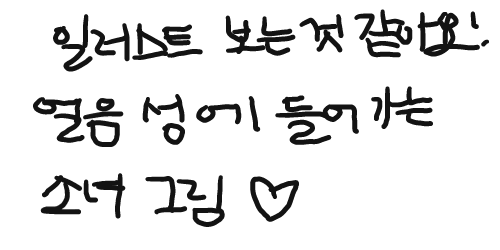 일러스트 보는것 같아요.
얼음 성에 들어가는
소녀 그림 ♡